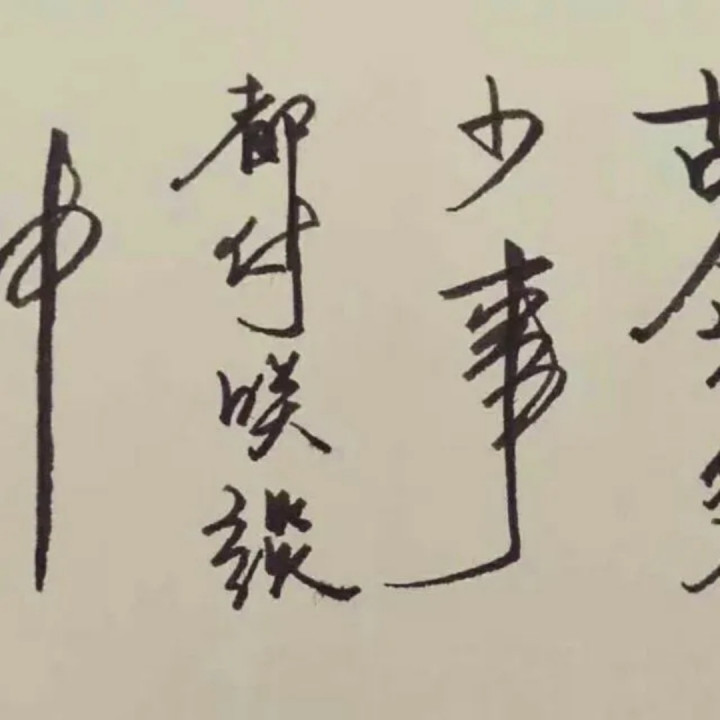 古今多
少事
都付笑談
中